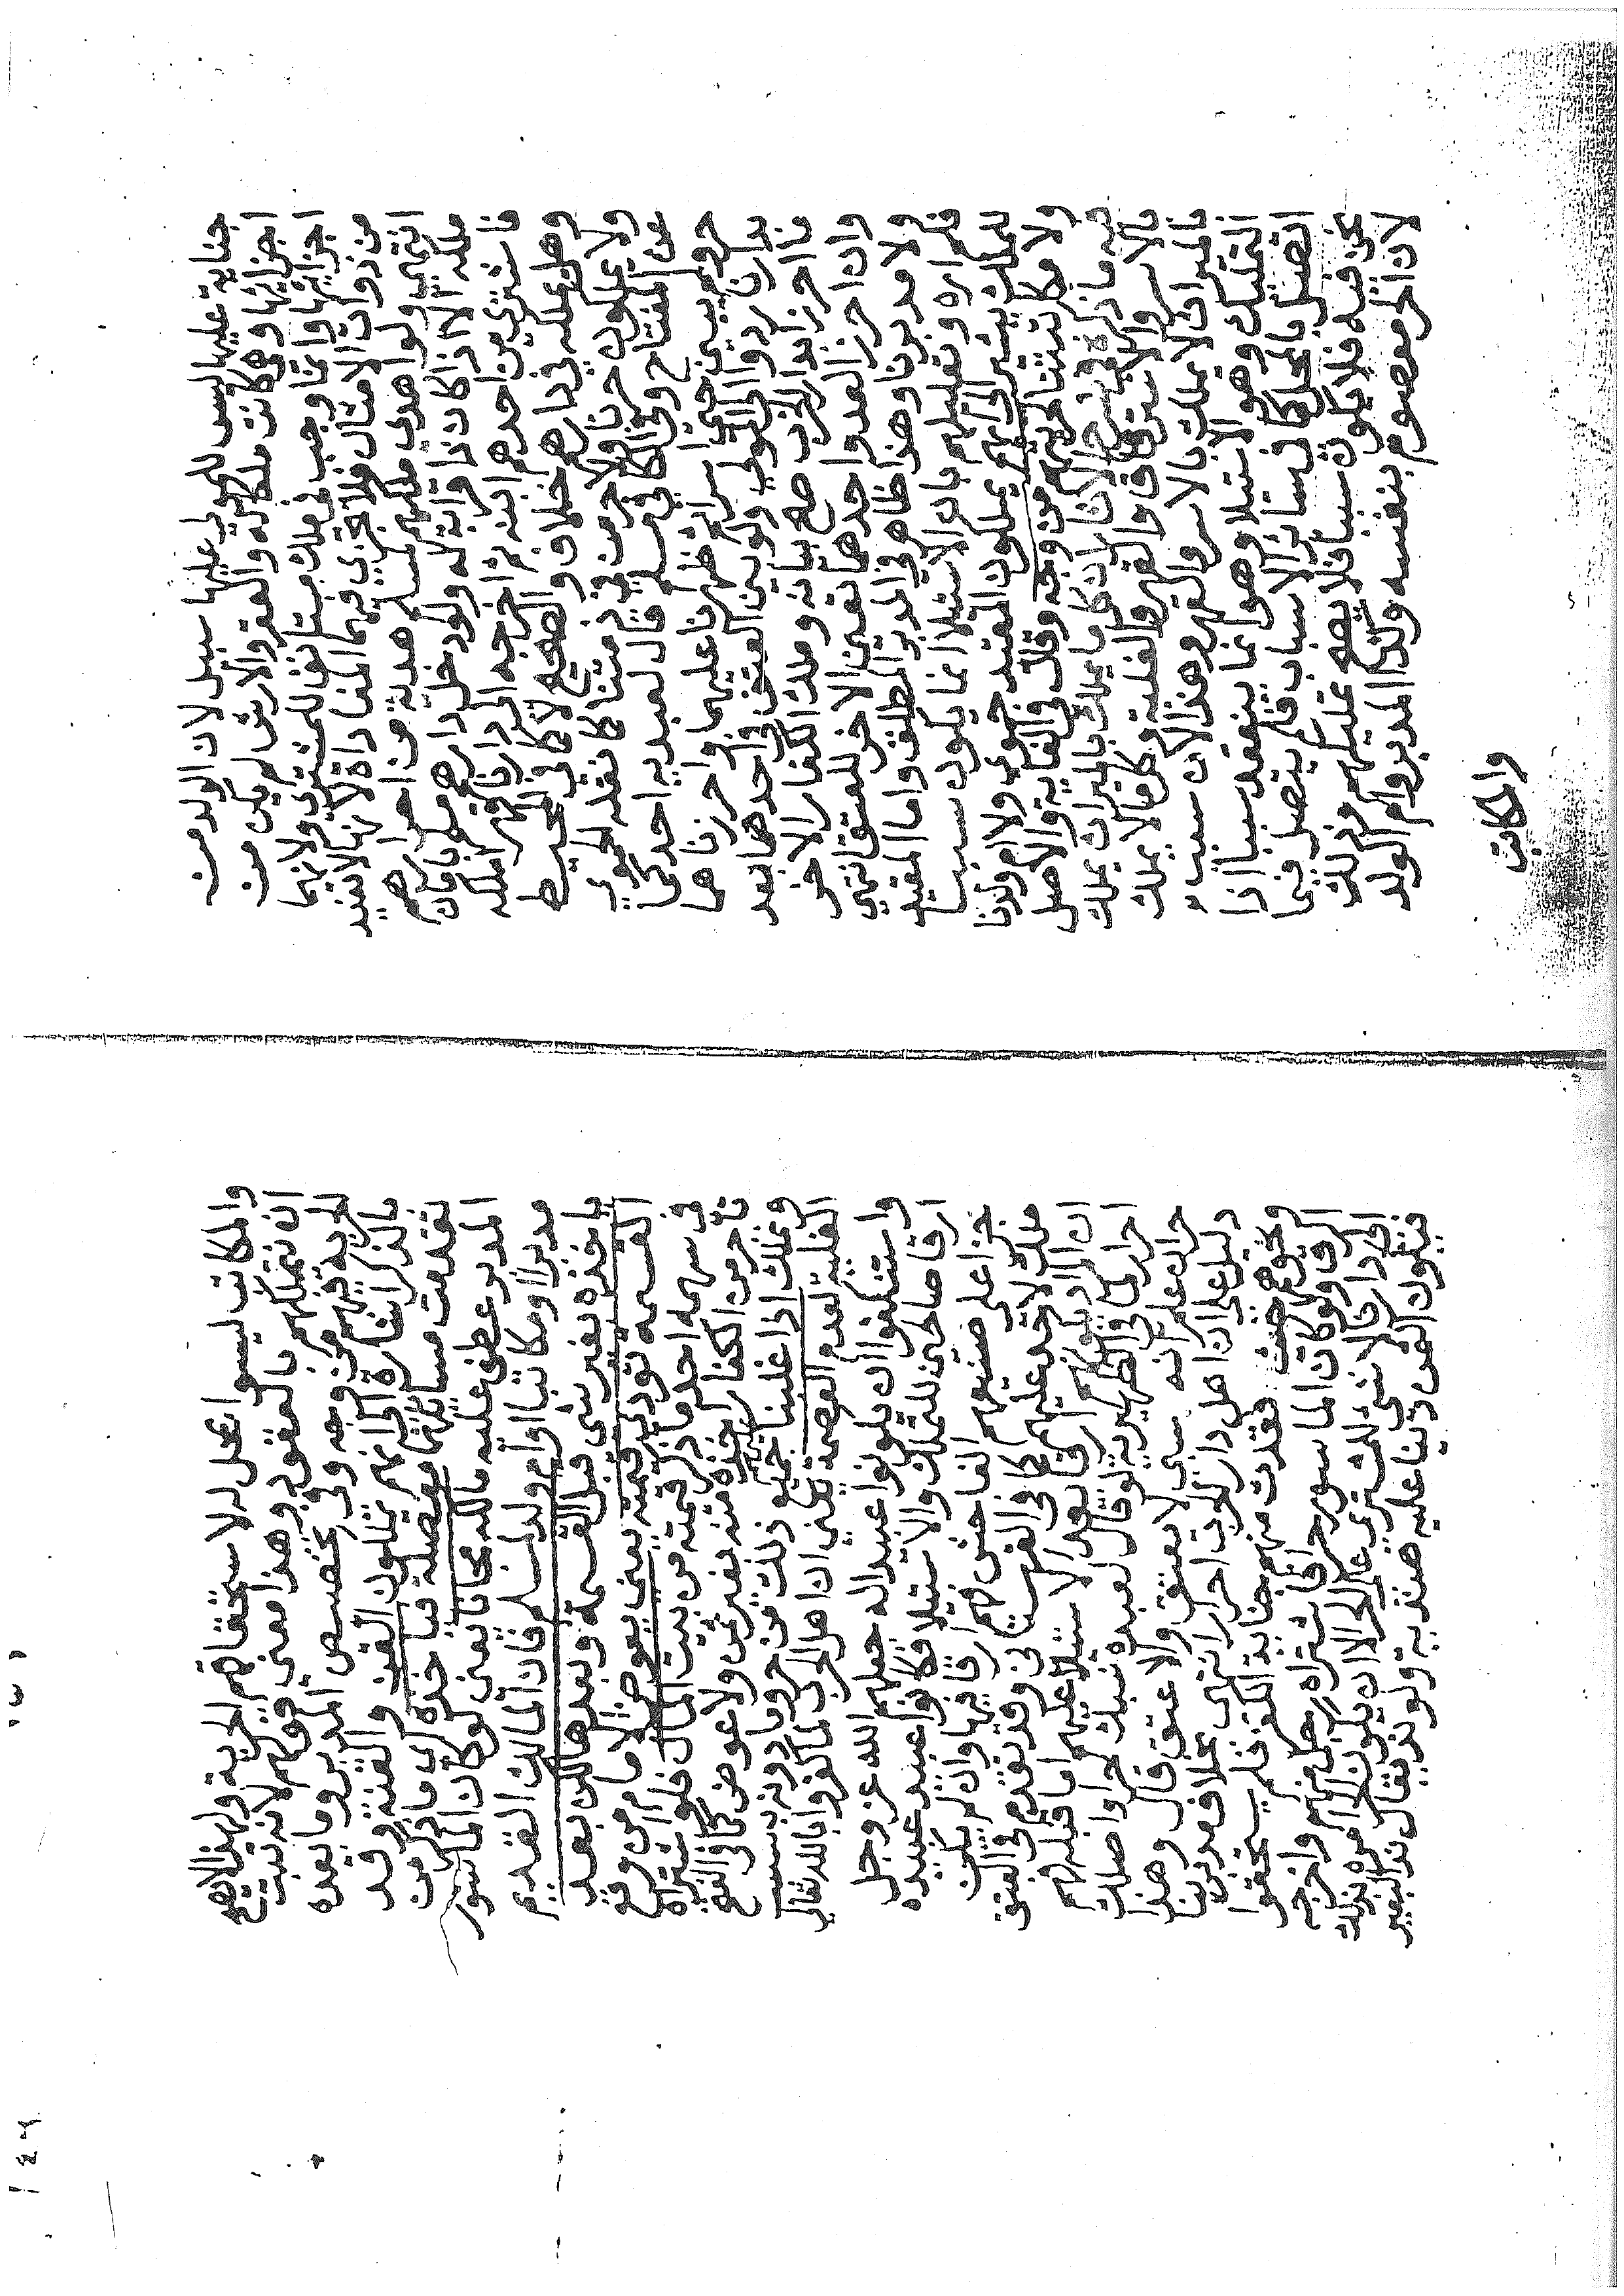 جناية عليها ليس للمولى عليها سبيل لان الولد من
اجزائها ولو كانت ملكا له والعقر والارش لم يكن من
اجزائها وانما وجب في ملك مبتدا للمشتري ولانهما
من ذوات الامثال فلا تجري فيهما المفاداة لانها لا تفيد
انتهى ولو اهدى ملكهم لمسلم هدية من احرارهم
ملكه الا اذا كان ذا قرابة له ولو دخل دارهم مسلم بامان
فاشترى من احدهم ابنه ثم اخرجه الى دارنا قهرا ملكه
وهل يملكه في دارهم خلاف والصحيح لا كما في المحيط
ولا يملكون حرنا ولا حر من في ذمتنا كما نقله الحموي
عن المفتاح وفي الكافي مسلم قال لعبديه احدكما
حر ولم يبين حتى اسرا ثم ظهرنا عليهما واحرزناهما
بدارنا ردوا الى المولى ولو بين العتق في احدهما بعد
ما احرزا بدار الحرب صح بيانه وملك الكفار الاخر
وان احرز العدو احدهما تعين الاخر للعتق انتهى
ولا مدبرنا وهذا ظاهر في المدبر المطلق واما المقيد
فلم اره وتعليلهم بان الاستيلا انما يكون سببا
للملك يشير الى انهم يملكون المقيد حموي ولا ام ولدنا
ولا مكاتبنا لحريتهم من وجه وقال في الغاية والاصل
فيه ما ذكره في شرح الاثار ان كلما يملك بالميراث يملك
بالاسر والاسترقاق والقهر والغلبة وكل ما لا يملك
بالميراث لا يملك بالاسر والقهر وهذا لان سبب
التمليك وهو الاستيلا وهو انما ينعقد سببا اذا
اتصل بالمحل كما في سائر الاسباب فاذا لم يتصل فيما
نحن فيه فلا يكون سببا فلا يصح تمليكهم وذلك
لان الحر معصوم بنفسه وكذا المدبر وام الولد
والمكاتب
والمكاتب ليسوا بمحل له لاستحقاقهم الحرية ولهذا لا يصح
ان نتملكهم بالعقود وهذا معنى قولهم لانه تثبت
الحرية فيهم من وجه وفي تخصيص المدبر وما بعده
بالذكر اشارة الى انهم يملكون القن والقنة وقد
تقدمت مسائلهما مفصلة فياخذه اي ما ذكر من
المدبر وما عطف عليه مالكه مجانا يعني لو كان الماسور
مدبرا او مكاتبا او ام ولد لمسلم فان المالك القديم
ياخذه بغير شي قبل القسمة وبعدها لكن بعد
القسمة تؤدى قيمته يعني يعوض الامام من وقع
في سهمه احد ما ذكر قيمته من بيت المال فلو اشتراه
تاجر من الكفار اخذه منه بغير ثمن ولا عوض كما في الفتح
ونملك اذا غلبنا جميع ذلك من حر وما دونه بسبب
الغلبة لعدم العصمة يعني ان اهل الحرب لما كفروا بالله تعالى
واستنكفوا ان يكونوا عبيدا له جعلهم الله عز وجل
ارقا صالحين للتملك والاستيلا فكانوا عبيد عبيده
جزا على صنيعهم الفاحش فهم ارقا بها وان لم يكن
ملك لاحد عليهم كما في القهستاني وقد تقدم في العتق
ان المراد بكونهم ارقا بعد الاستيلا عليهم اما قبله فهم
احرار لما في الظهيرية لو قال لعبده نسبك حر او اصلك
حر ان علم انه سبي لا يعتق والا عتق قال وهذا
دليل على ان اهل دار الحرب احرار انتهى بخلاف مدبرينا
ونحوهم حيث فقدت منهم جناية الكفر فلم يستحقوا
الرق ولو كان الماسور حرا فاشتراه رجل منهم واخرجه
الى دارنا لا شي للمشتري على الحر الا ان يكون الحر امره بذلك
فيكون الثمن دينا عليه هندية ولو ند يقال ند البعير